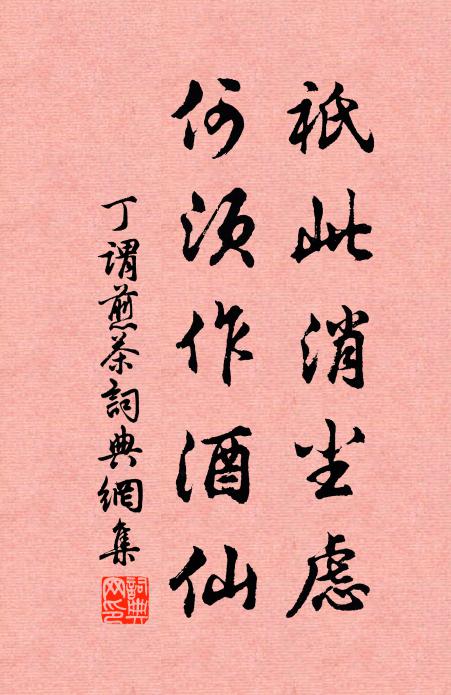 祇此消尘虑
何须作酒仙
丁谓煎茶詞典網集
詞典网印